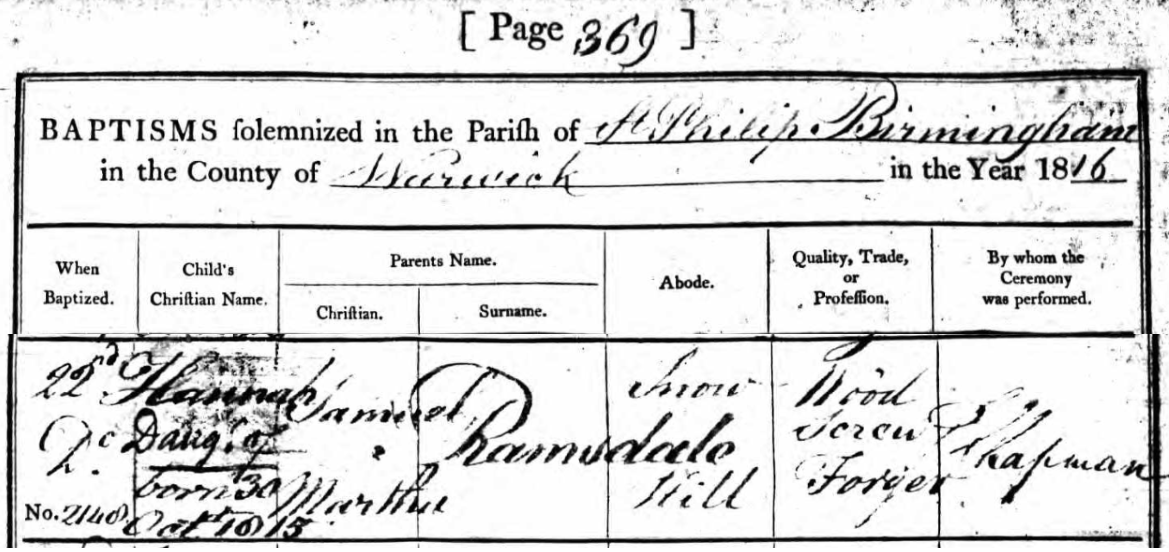 [ Page 369 ]
BAPTISMS ſolemnized in the Pariſh of St Philip Birmingham
in the County of Warwick in the Year 1816
When
Baptized.
Child's
Chriſtian Name.
Parents Name.
Chriſtian.
Surname.
Abode.
Quality, Trade,
or
Profeſſion.
By whom the
Ceremony
was performed.
22d
Dec
No. 2148
Hannah
Daugr of
born 30
Octr 1815
Samuel
&
Martha
Ramsdale
Snow
Hill
Wood
Screw
Forger
Chapman